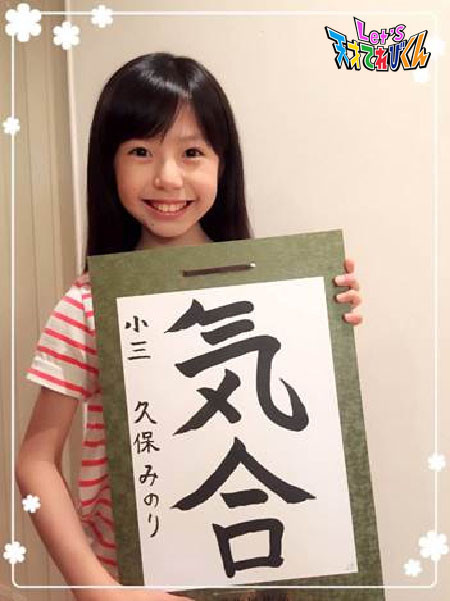 Let's
天才てれびくん
気合
小三 久保みのり